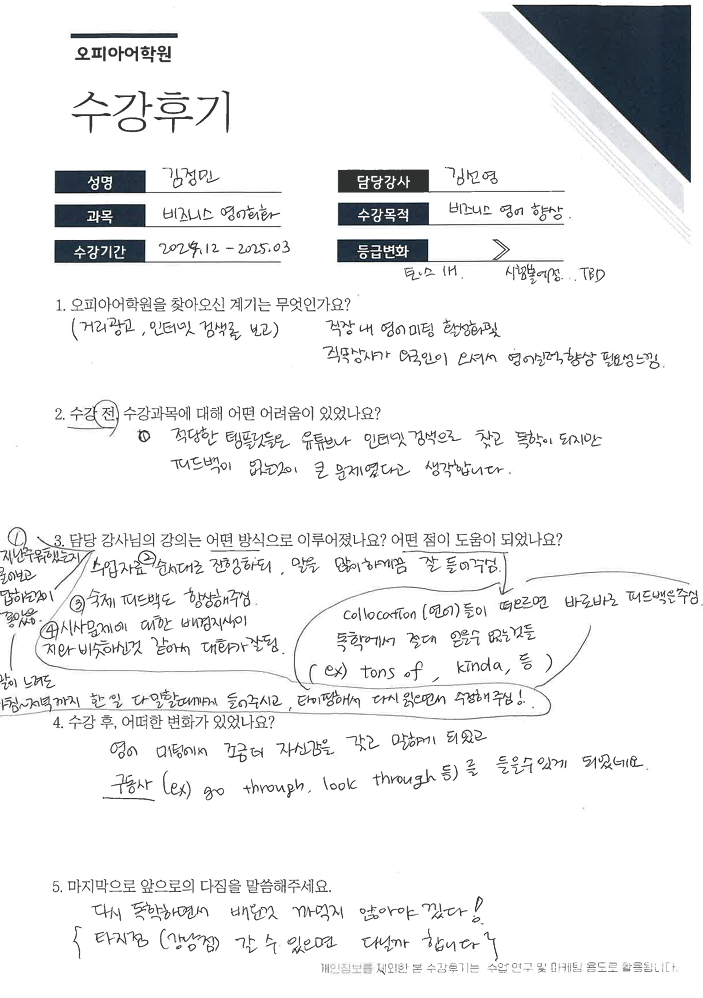 오피아어학원
수강후기
성명 김정민
담당강사 김선영
과목 비즈니스 영어회화
수강목적 비즈니스 영어 향상.
수강기간 2024.12 - 2025.03
등급변화
토·스 IH. 시험볼예정.. TBD
1. 오피아어학원을 찾아오신 계기는 무엇인가요?
(거리광고, 인터넷 검색을 보고) 직장 내 영어미팅 활성화 및
직속상사가 외국인이 오셔서 영어실력향상 필요성느낌.
2. 수강 전, 수강과목에 대해 어떤 어려움이 있었나요?
적당한 템플릿들은 유튜브나 인터넷 검색으로 찾고 독학이 되지만
피드백이 없는것이 큰 문제였다고 생각합니다.
3. 담당 강사님의 강의는 어떤 방식으로 이루어졌나요? 어떤 점이 도움이 되었나요?
①
지난주 뭐했는지
물어보고
답하는것이
좋았음.
수업자료 ② 순서대로 진행하되, 말을 많이하게끔 잘 들어주심.
③ 숙제 피드백도 항상해주심.
④ 시사문제에 대한 배경지식이
저와 비슷하신것 같아서 대화가 잘됨.
collocation (연어)들이 떠오르면 바로바로 피드백을주심.
독학에서 절대 얻을수 없는것들
(ex) tons of, kinda, 등)
말이 느려도
아침~저녁까지 한 일 다 말할때까지 들어주시고, 타이핑해서 다시 읽으면서 수정해주심!.
4. 수강 후, 어떠한 변화가 있었나요?
영어 미팅에서 조금 더 자신감을 갖고 말하게 되었고
구동사 (ex) go through, look through 등)를 들을수 있게 되었네요.
5. 마지막으로 앞으로의 다짐을 말씀해주세요.
다시 독학하면서 배운것 까먹지 않아야 겠다!
{ 타지점 (강남점) 갈 수 있으면 다닐까 합니다 }
개인정보를 제외한 본 수강후기는 수업 연구 및 마케팅 용도로 활용됩니다.